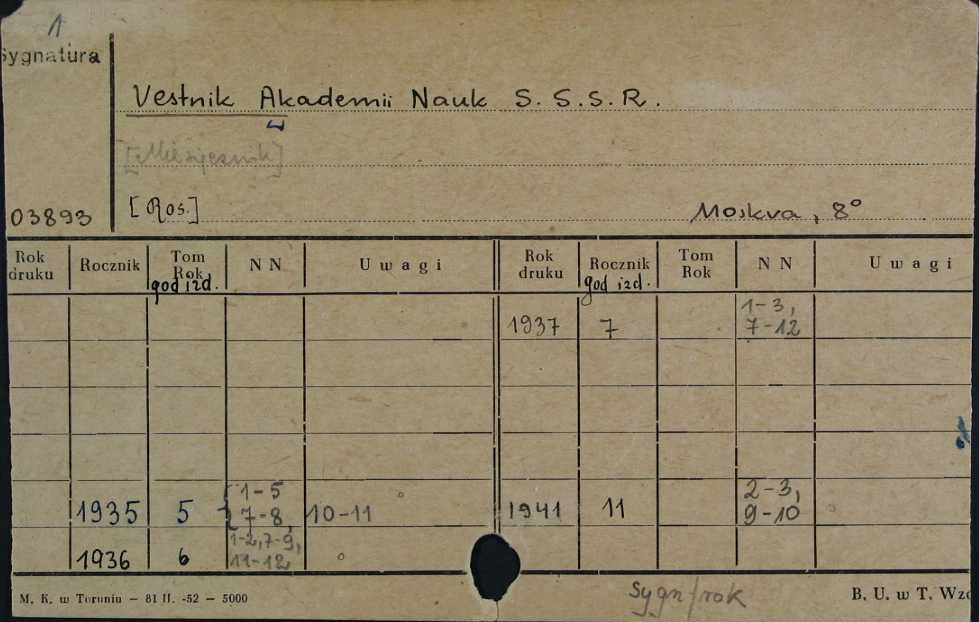 1
Sygnatura
Vestnik Akademii Nauk S.S.S.R.
[Miesięcznik]
03893
[Ros.]
Moskva, 8°
Rok druku Rocznik Tom Rok god izd. NN Uwagi Rok druku Rocznik god izd. Tom Rok NN Uwagi
1937 7 1-3, 7-12
1935 5 1-5 7-8, 10-11 1941 11 2-3, 9-10
1936 6 1-2, 7-9, 11-12
M. K. w Toruniu — 81 II. -52 — 5000
Sygn/rok
B. U. w T. Wzó